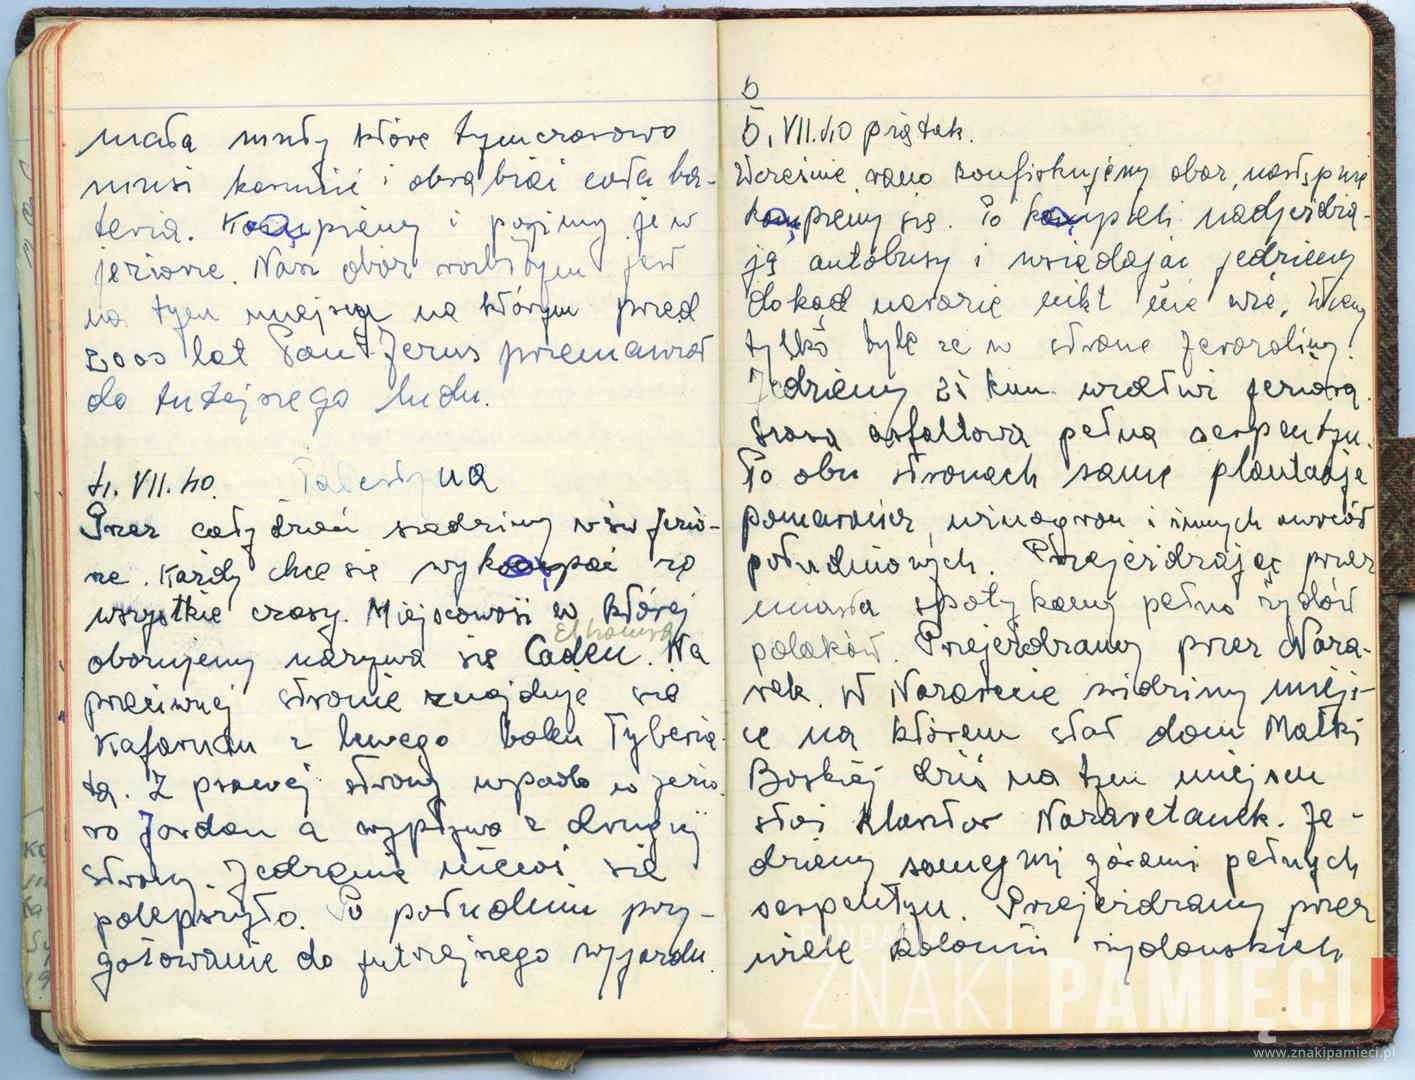 mała muły które tymczasowo
musi karmić i obrabiać cała ba-
teria. Kąpiemy i poimy je w
jeziorze. Nasz obóz rozbitym jest
na tym miejscu na którym przed
2000 lat Pan Jezus przemawiał
do tutejszego ludu.
4. VII. 40. Palestyna
Przez cały dzień siedzimy w jezio-
rze. Każdy chce się wykąpać za
wszystkie czasy. Miejscowość w której
obozujemy nazywa się Caden. Na
przeciwnej stronie znajduje się
Kafarnum z lewego boku Tyberia-
da. Z prawej strony wpada do jezio-
ro Jordan a wypływa z drugiej
strony. Jedzenie niewi się
polepszyło. Po południu przy-
gotowanie do jutrzejszego wyjazdu.
5
5. VII. 40 piątek.
Wcześnie rano konfiskujemy obóz, następnie
kąpiemy się. Po kąpieli nadjeżdża-
ją autobusy i wsiadajac jedziemy
dokąd narazie nikt nie wie. Wiemy
tylko tyle że w stronę Jerozolimy.
Jedziemy 25 km wzdłuż jeziora.
Szosa asfaltowa pełna serpentyn.
Po obu stronach same plantacje
pomarańcz, winogron i innych owoców
południowych. Przejeżdżając przez
miasta spotykamy pełno żydów
polaków. Przejeżdzamy przez Naza-
ret. W Nazarecie widzimy miejs-
ce na którem stał dom Matki
Boskiej dziś na tym miejscu
stoi klasztor Nazaretanek. Je-
dziemy samymi górami pełnych
serpentyn. Przejeżdzamy przez
wiele kolonii żydowskich
FUNDACJA
ZNAKI PAMIĘCI
www.znakipamieci.pl